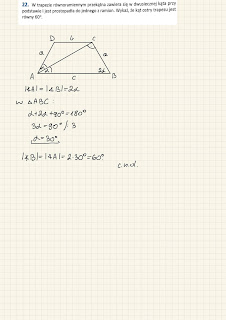 22. W trapezie równoramiennym przekątna zawiera się w dwusiecznej kąta przy
podstawie i jest prostopadła do jednego z ramion. Wykaż, że kąt ostry trapezu jest
równy 60°.
D b C
a a
α 2α
A c B
|∢A| = |∢B| = 2α
w △ABC:
α+2α+90°=180°
3α=90° /:3
α=30°
|∢B|=|∢A|=2·30°=60°
c.n.d.